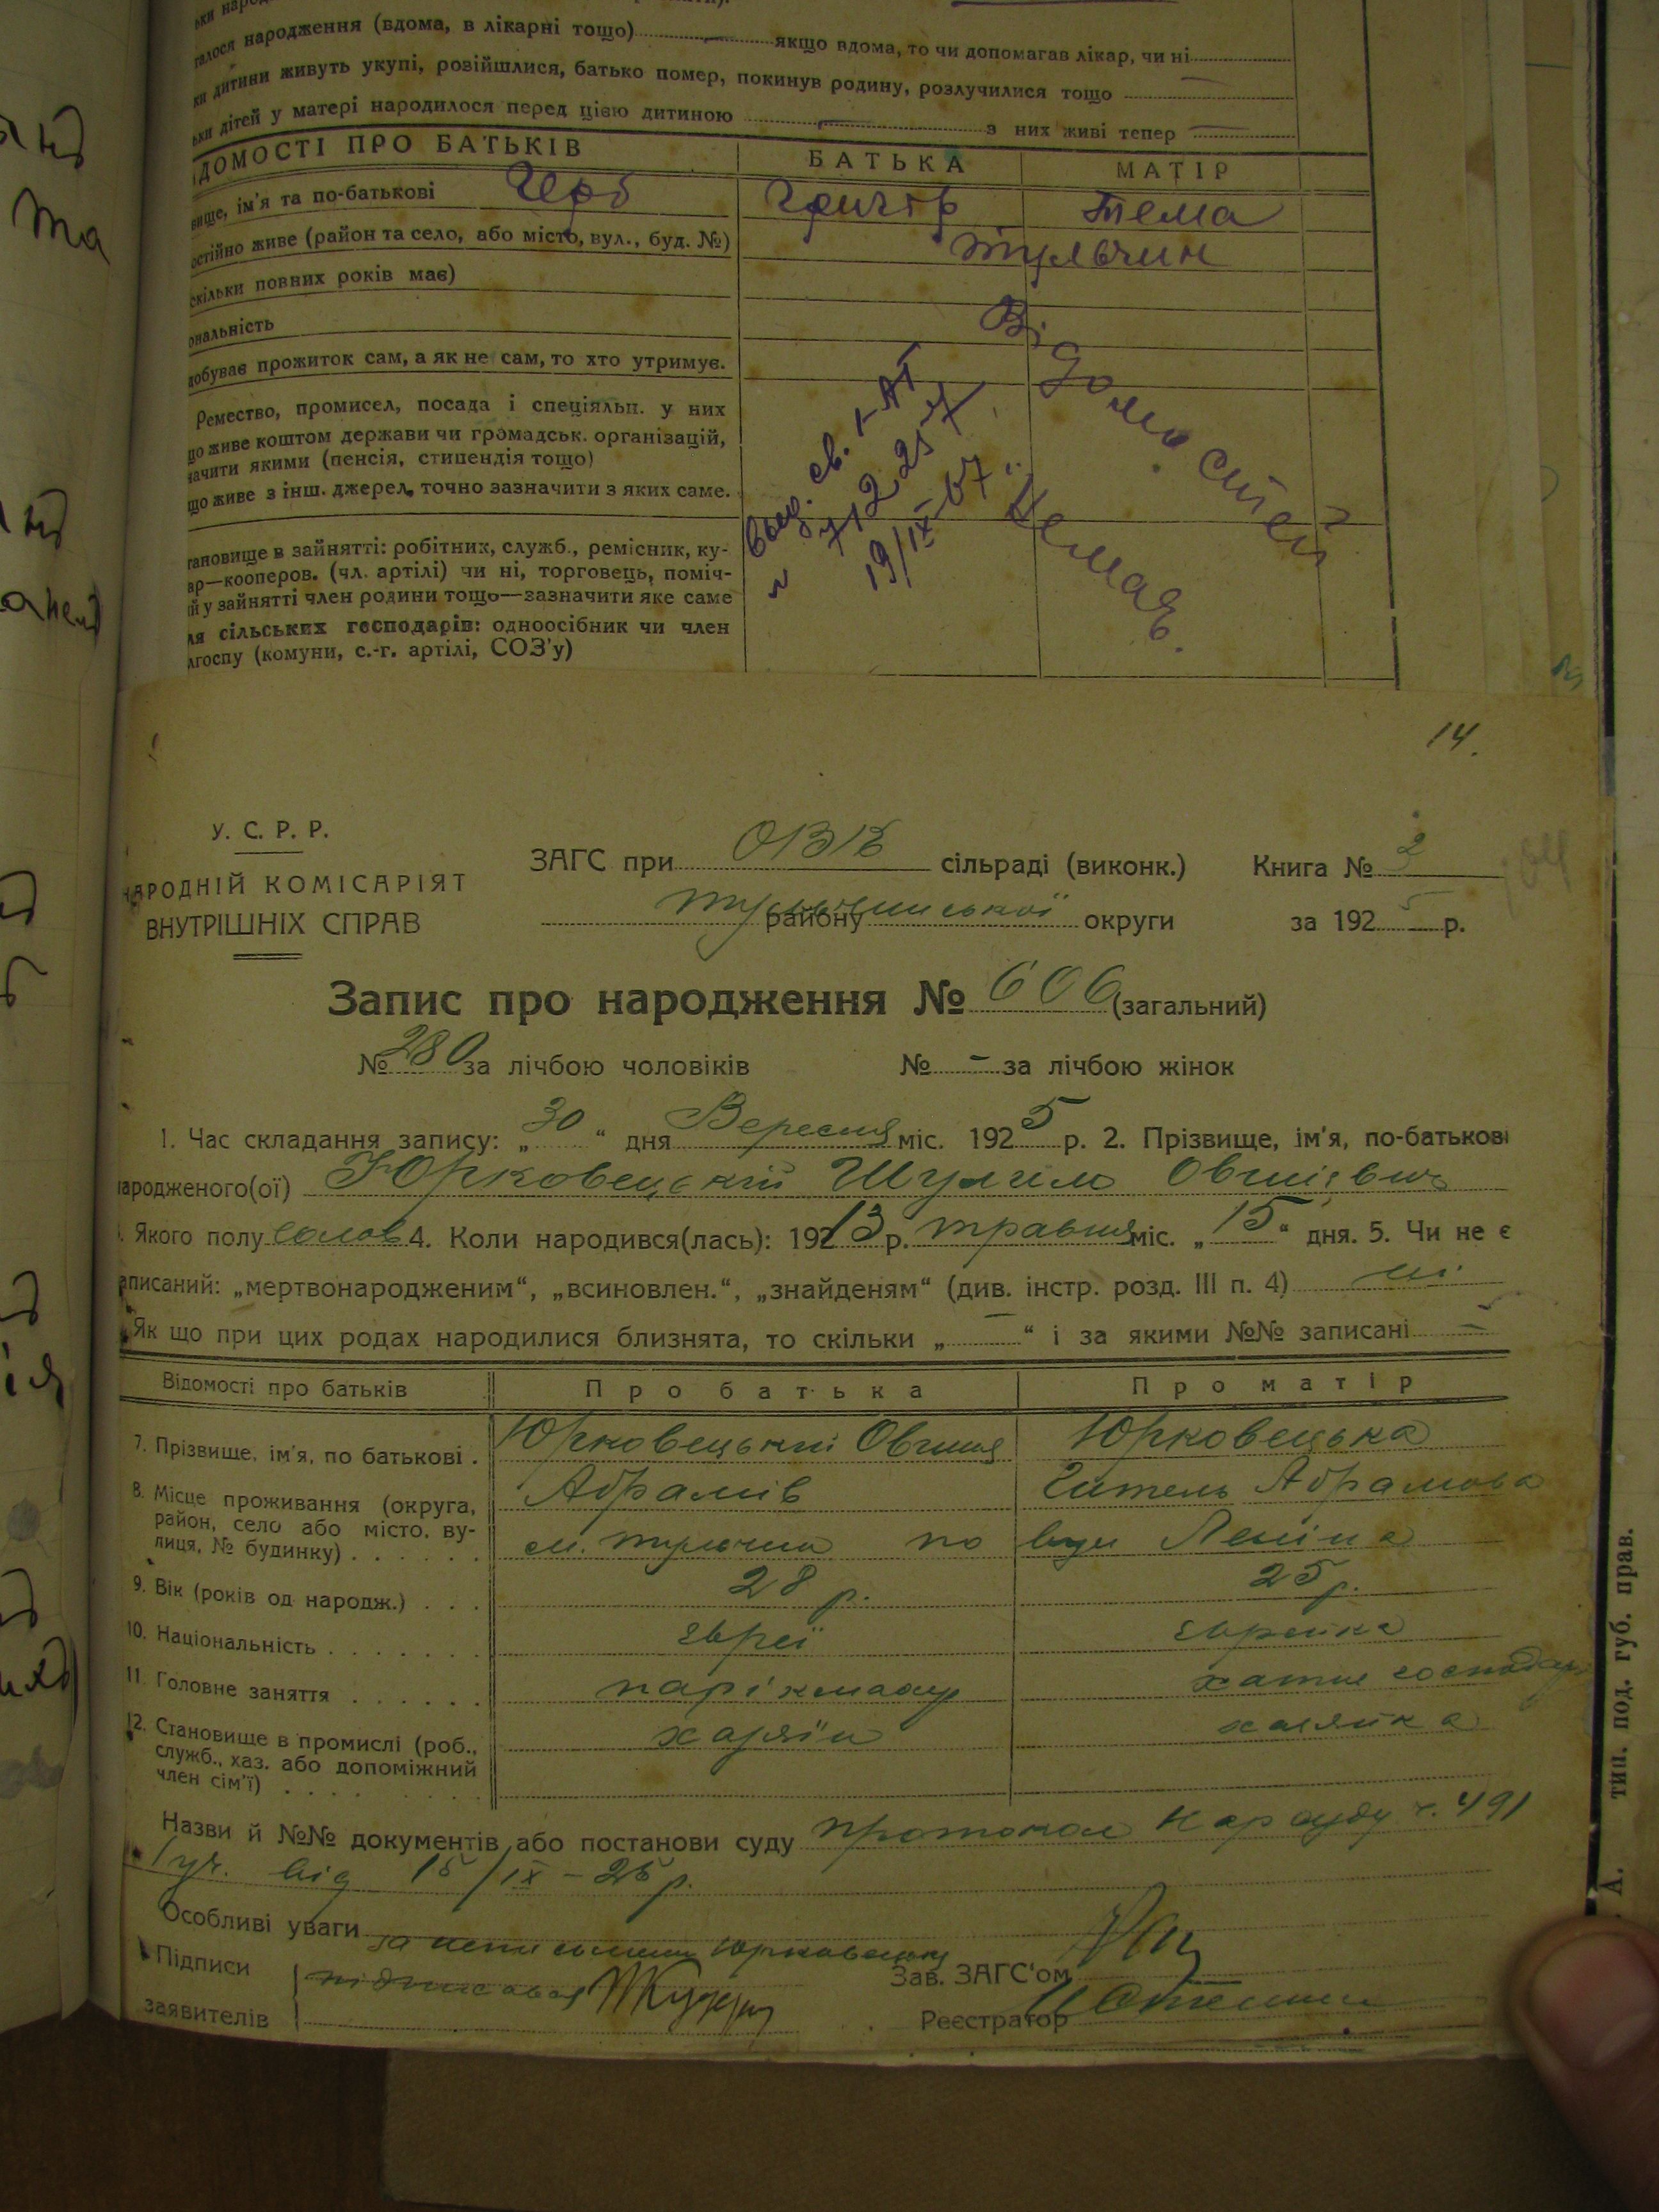 талося народження (вдома, в лікарні тощо) якщо вдома, то чи допомагав лікар, чи ні
ки дитини живуть укупі, розвійшлися, батько помер, покинув родину, розлучилися тощо
ьки дітей у матері народилося перед цією дитиною з них живі тепер
ДОМОСТІ ПРО БАТЬКІВ БАТЬКА МАТІР
вище, ім'я та по-батькові Черб Тема
остійно живе (район та село, або місто, вул., буд. №) Тульчин
скільки повних років має)
ональність
добуває прожиток сам, а як не сам, то хто утримує.
Ремество, промисел, посада і спеціяльн. у них
що живе коштом держави чи громадськ. організацій,
начити якими (пенсія, стипендія тощо)
що живе з інш. джерел, точно зазначити з яких саме.
Відомостей
немає.
19/IX-67
тановище в зайнятті: робітник, служб., ремісник, ку-
ар—кооперов. (чл. артілі) чи ні, торговець, поміч-
ий у зайнятті член родини тощо—зазначити яке саме
ля сільських господарів: одноосібник чи член
лгоспу (комуни, с.-г. артілі, СОЗ'у)
14.
У. С. Р. Р.
НАРОДНІЙ КОМІСАРІЯТ
ВНУТРІШНІХ СПРАВ
ЗАГС при ОВВ сільраді (виконк.) Книга № 2
району Тульчинської округи за 1925 р.
Запис про народження № 606 (загальний)
№ 280 за лічбою чоловіків № – за лічбою жінок
1. Час складання запису: „30“ дня Вересня міс. 1925 р. 2. Прізвище, ім'я, по-батькові
народженого(ої) Юрковецький Шулим Овшієвич
Якого полу чолов 4. Коли народився(лась): 1923 р. травня міс. „15“ дня. 5. Чи не є
аписаний: „мертвонародженим“, „всиновлен.“, „знайденям“ (див. інстр. розд. III п. 4) ні
Як що при цих родах народилися близнята, то скільки „—“ і за якими №№ записані —
Відомості про батьків Про батька Про матір
7. Прізвище, ім'я, по батькові . Юрковецький Овшия Юрковецька
Абрамів Гитель Абрамова
8. Місце проживання (округа,
район, село або місто, ву-
лиця, № будинку) . . . . . . м. Тульчин по вул Леніна
9. Вік (років од народж.) . . . 28 р. 25 р.
10. Національність . . . . . . . єврей єврейка
11. Головне заняття . . . . . . парікмахер хатня господар
12. Становище в промислі (роб.,
служб., хаз. або допоміжний
член сім'ї) . . . . . . . . хазяїн хазяйка
Назви й №№ документів або постанови суду протокол Нарсуду ч. 491
1 уч. від 15/IX-25 р.
Особливі уваги за неписьмен Юрковецьку
Підписи підписався
заявителів
Зав. ЗАГС'ом
Реєстратор
А. тип. под. губ. прав.